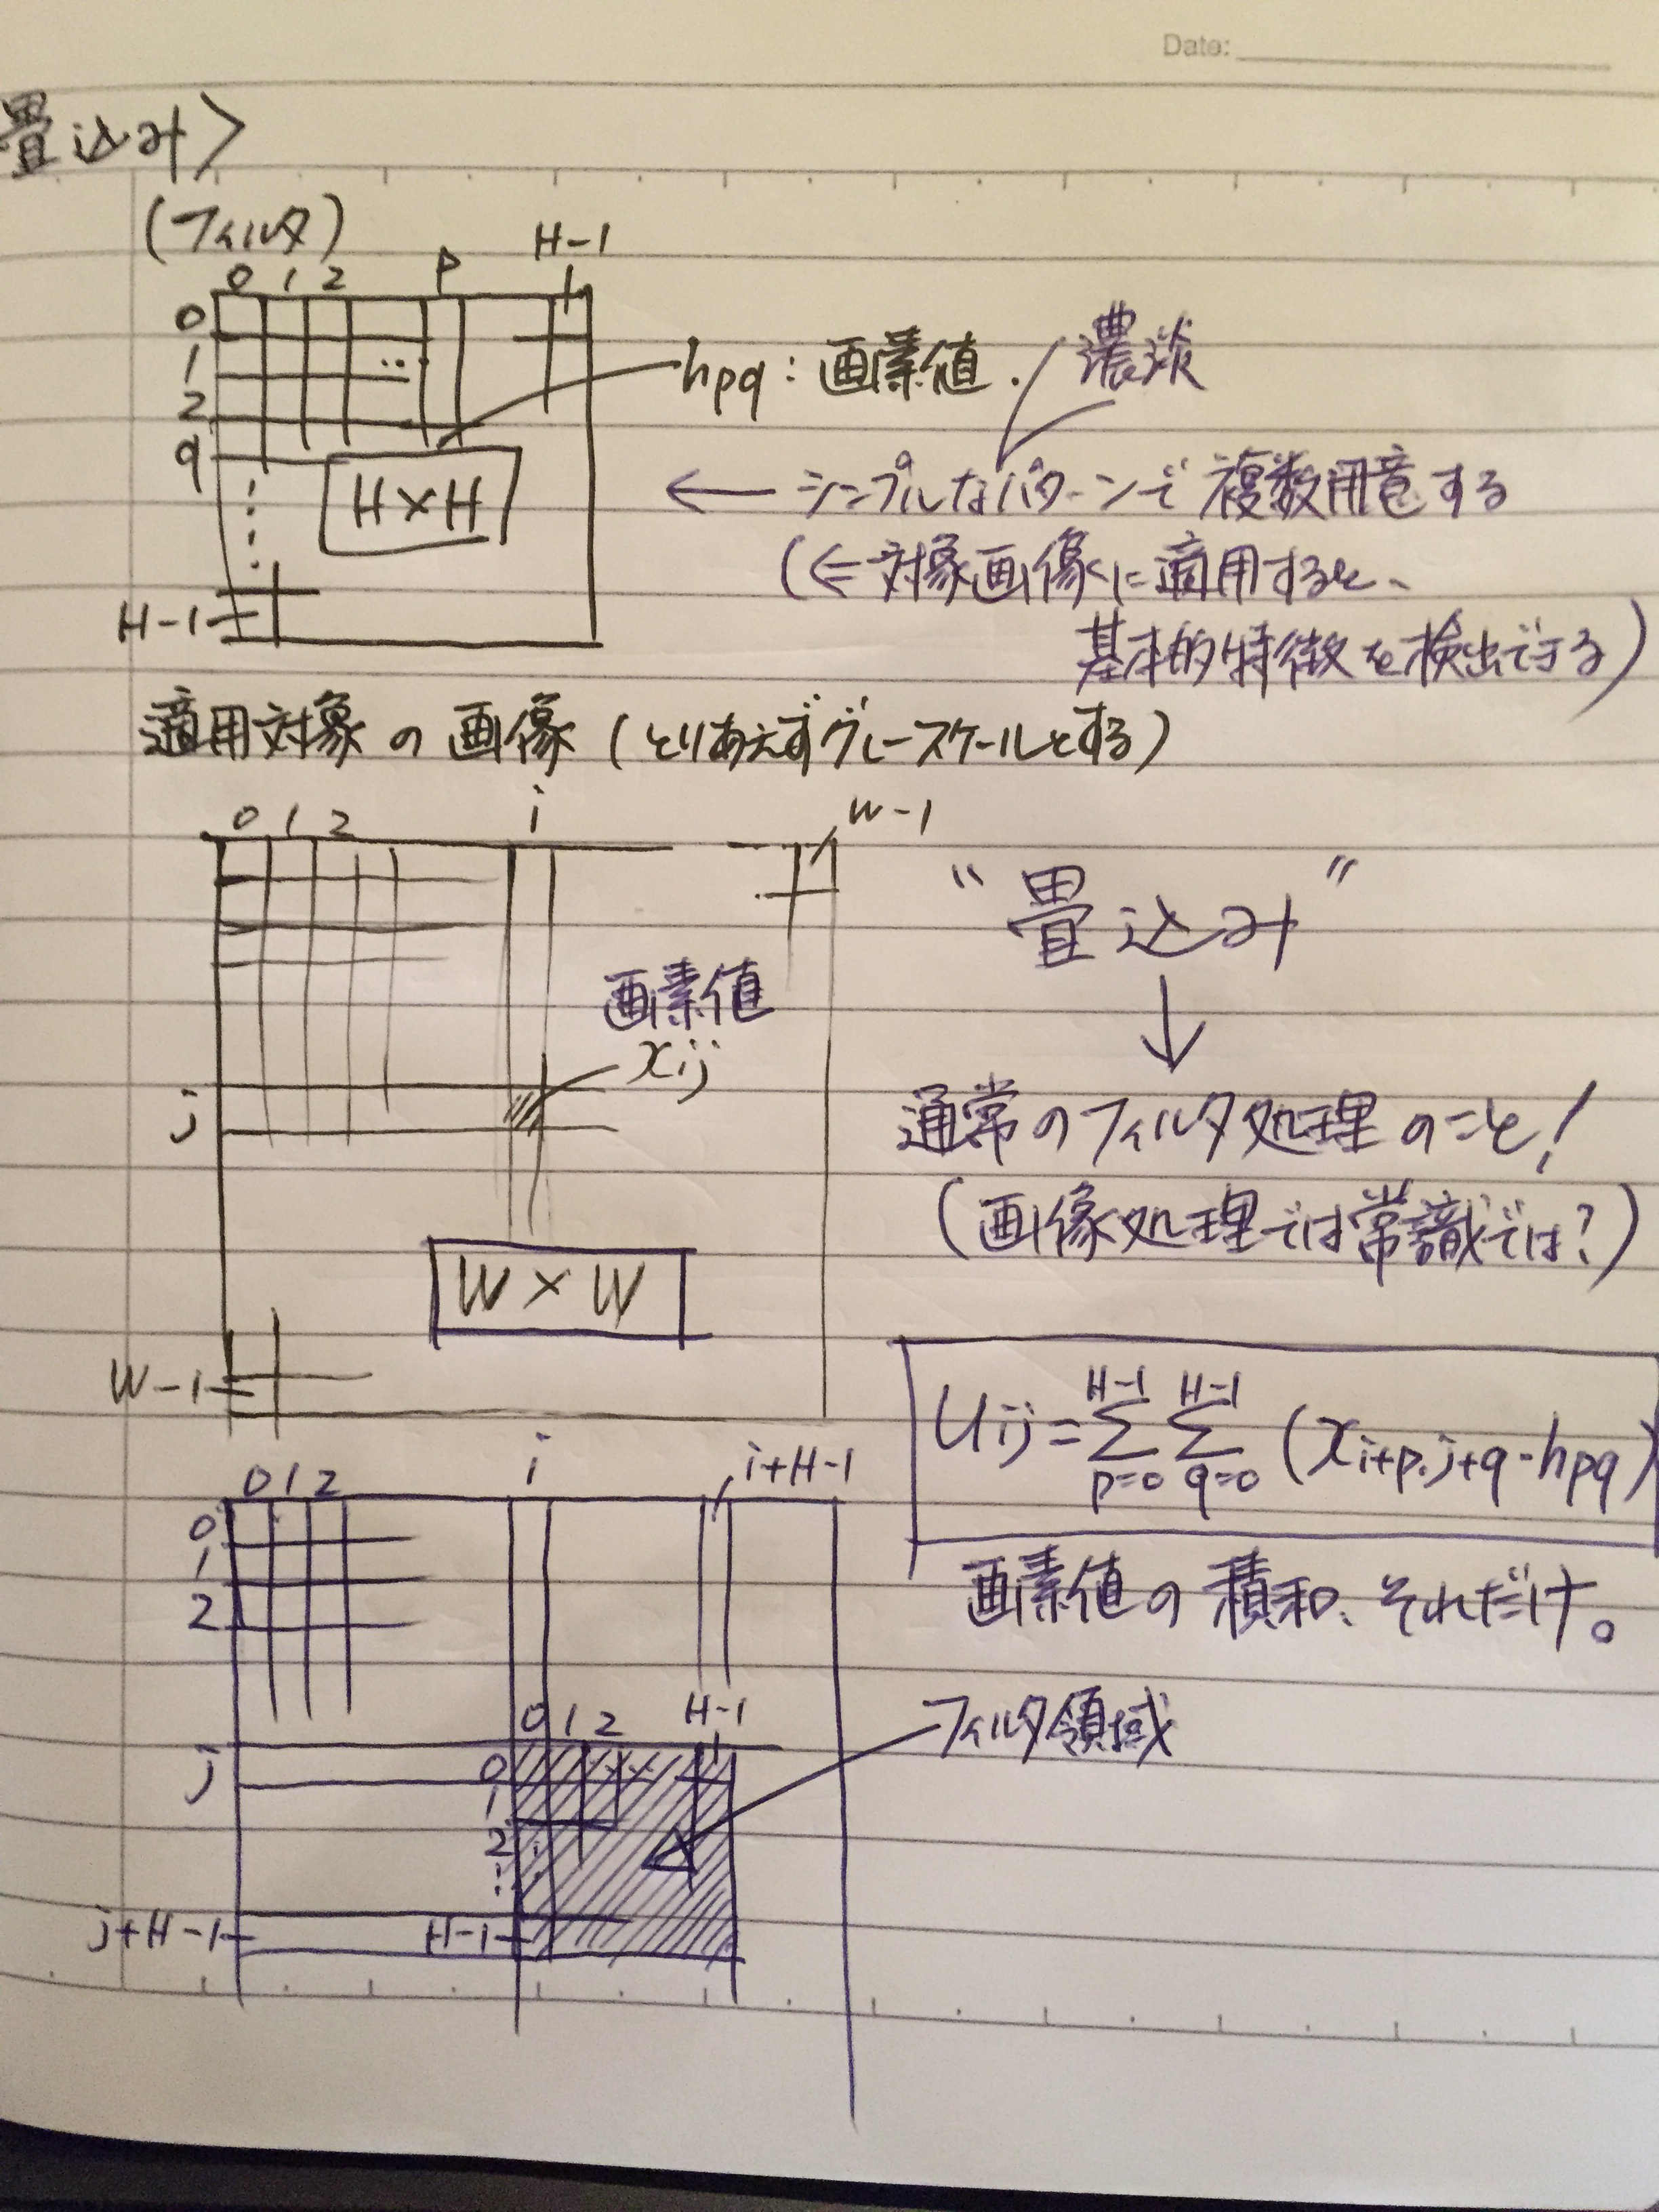 Date:
畳込み>
(フィルタ)
0 1 2 P H-1
0
1
2
q
H-1
H×H
hpq:画素値.
濃淡
← シンプルなパターンで複数用意する
(⇐対象画像に適用すると、
基本的特徴を検出できる)
適用対象の画像(とりあえずグレースケールとする)
0 1 2 i W-1
画素値
xij
j
W×W
W-1
"畳込み"
↓
通常のフィルタ処理のこと!
(画像処理では常識では?)
Uij=ΣΣ(xi+p,j+q・hpq)
H-1 H-1
p=0 q=0
画素値の積和、それだけ。
0 1 2 i i+H-1
0
1
2
フィルタ領域
0 1 2 H-1
j
0
1
2
j+H-1
H-1